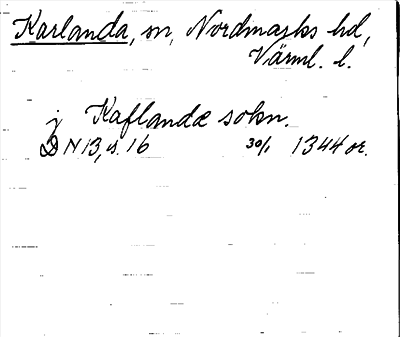 Karlanda, sn, Nordmarks hd,
Värml. l.
j Kaflandæ sokn.
DN 13, s. 16 30/1 1344 or.